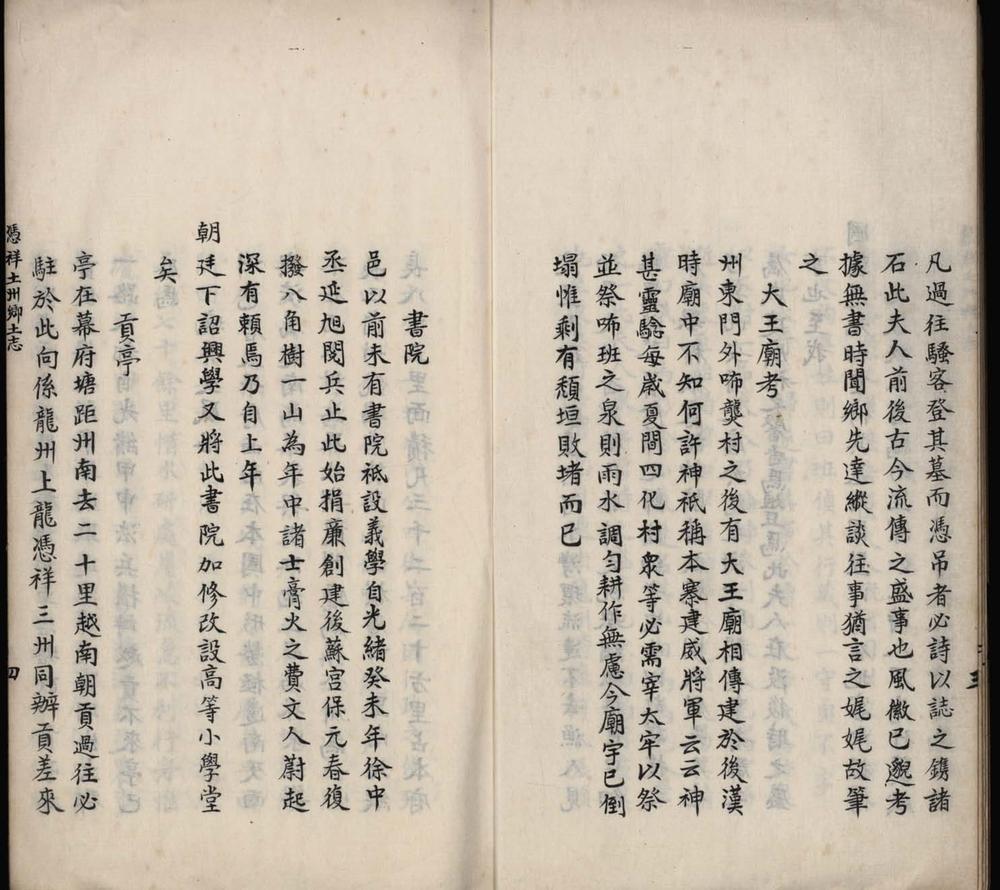 凡過往騷客登其墓而憑吊者必詩以誌之鐫諸
石此夫人前後古今流傳之盛事也風徽已邈考
據無書時聞鄉先達縱談往事猶言之娓娓故筆
之
大王廟考
州東門外咘龔村之後有大王廟相傳建於後漢
時廟中不知何許神祇稱本寨建威將軍云云神
甚靈驗每歲夏間四化村眾等必需宰太牢以祭
並祭咘班之泉則雨水調勻耕作無慮今廟宇已倒
塌惟剩有頹垣敗堵而已
三
書院
邑以前未有書院祗設義學自光緒癸未年徐中
丞延旭閱兵止此始捐廉創建後蘇宮保元春復
撥八角樹一山為年中諸士膏火之費文人蔚起
深有賴焉乃自上年
朝廷下詔興學又將此書院加修改設高等小學堂
矣
貢亭
亭在幕府塘距州南去二十里越南朝貢過往必
駐於此向係龍州上龍憑祥三州同辦貢差來
憑祥土州鄉土志
四